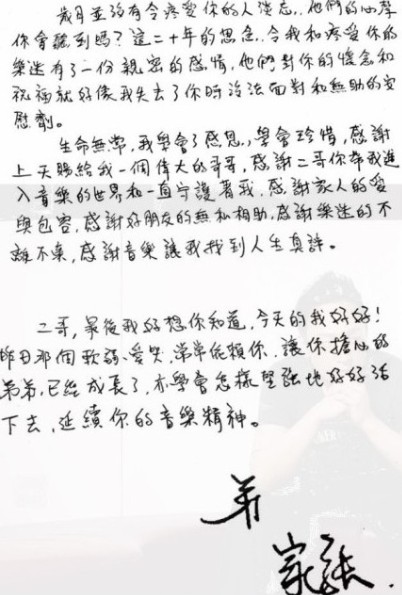 歲月並沒有令疼愛你的人淡忘，他們的心聲
你會聽到嗎？這二十年的思念，令我和疼愛你的
樂迷有了一份親密的感情，他們對你的懷念和
祝福就好像我失去了你時沒法面對和無助的安
慰劑。
生命無常，我學會了感恩，學會珍惜，感謝
上天賜給我一個偉大的哥哥，感謝二哥你帶我進
入音樂的世界和一直守護著我，感謝家人的愛
與包容，感謝好朋友的無私相助，感謝樂迷的不
離不棄，感謝音樂讓我找到人生真諦。
二哥，最後我好想你知道，今天的我好好！
昨日那個軟弱、愛哭，常常依賴你、讓你擔心的
弟弟，已經成長了，亦學會怎樣堅強地好好活
下去，延續你的音樂精神。
弟
家強